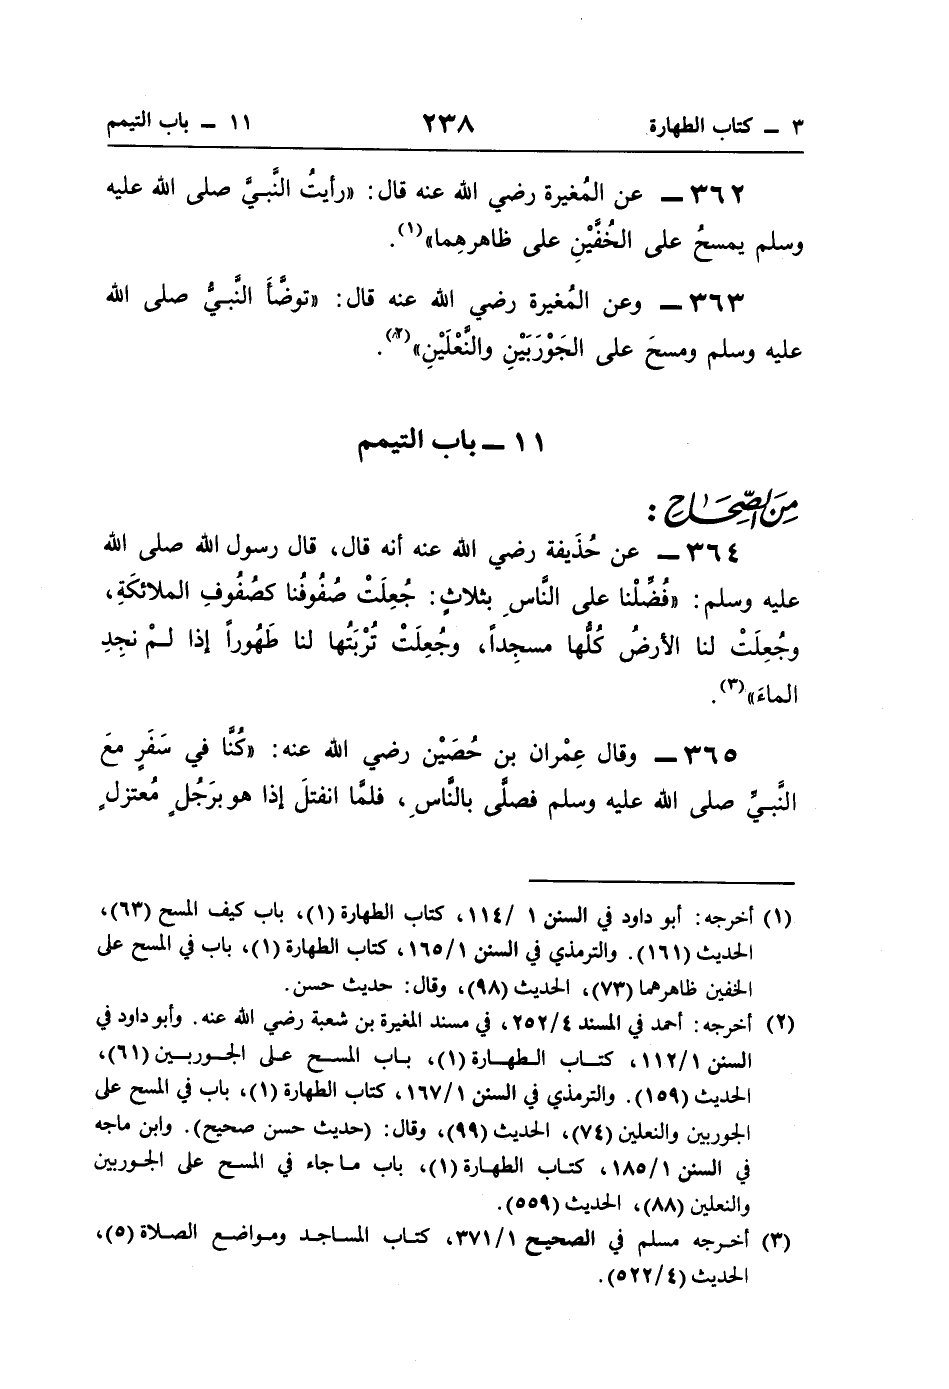 ٣ ــ كتاب الطهارة ٢٣٨ ١١ ــ باب التيمم
٣٦٢ــ عن المُغيرة رضي الله عنه قال: «رأيتُ النَّبيَّ صلى الله عليه
وسلم يمسحُ على الخُفَّيْنِ على ظاهرِهِما»(١).
٣٦٣ــ وعن المُغيرة رضي الله عنه قال: «توضَّأَ النَّبيُّ صلى الله
عليه وسلم ومسحَ على الجَوْرَبَيْنِ والنَّعْلَيْنِ»(٢).
١١ ــ باب التيمم
مِنَ الصِّحَاحِ :
٣٦٤ــ عن حُذَيفة رضي الله عنه أنه قال، قال رسول الله صلى الله
عليه وسلم: «فُضِّلْنا على النَّاسِ بثلاثٍ: جُعِلَتْ صُفُوفُنا كصُفُوفِ الملائكَةِ،
وجُعِلَتْ لنا الأرضُ كُلُّها مسجِداً، وجُعِلَتْ تُرْبَتُها لنا طَهُوراً إذا لـمْ نجِدِ
الماءَ»(٣).
٣٦٥ــ وقال عِمْران بن حُصَيْن رضي الله عنه: «كُنَّا في سَفَرٍ معَ
النَّبيِّ صلى الله عليه وسلم فصلَّى بالنَّاسِ، فلمَّا انفتلَ إذا هو برَجُلٍ مُعتزلٍ
(١) أخرجه: أبو داود في السنن ١/١١٤، كتاب الطهارة (١)، باب كيف المسح (٦٣)،
الحديث (١٦١). والترمذي في السنن ١/١٦٥، كتاب الطهارة (١)، باب في المسح على
الخفين ظاهرهما (٧٣)، الحديث (٩٨)، وقال: حديث حسن.
(٢) أخرجه: أحمد في المسند ٤/٢٥٢، في مسند المغيرة بن شعبة رضي الله عنه. وأبو داود في
السنن ١/١١٢، كتاب الطهارة (١)، باب المسح على الجوربين (٦١)،
الحديث (١٥٩). والترمذي في السنن ١/١٦٧، كتاب الطهارة (١)، باب في المسح على
الجوربين والنعلين (٧٤)، الحديث (٩٩)، وقال: (حديث حسن صحيح). وابن ماجه
في السنن ١/١٨٥، كتاب الطهارة (١)، باب ما جاء في المسح على الجوربين
والنعلين (٨٨)، الحديث (٥٥٩).
(٣) أخرجه مسلم في الصحيح ١/٣٧١، كتاب المساجد ومواضع الصلاة (٥)،
الحديث (٥٢٢/٤).